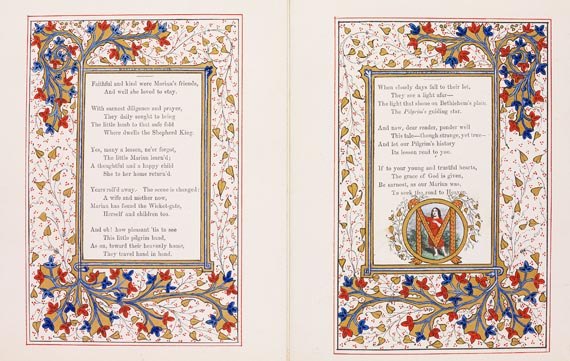 Faithful and kind were Marian's friends,
And well she loved to stay.
With earnest diligence and prayer,
They daily sought to bring
The little lamb to that safe fold
Where dwells the Shepherd King.
Yes, many a lesson, ne'er forgot,
The little Marian learn'd;
A thoughtful and a happy child
She to her home return'd.
Years roll'd away. The scene is changed:
A wife and mother now,
Marian has found the Wicket-gate,
Herself and children too.
And oh! how pleasant 'tis to see
This little pilgrim band,
As on, toward their heavenly home,
They travel hand in hand.
When cloudy days fall to their lot,
They see a light afar—
The light that shone on Bethlehem's plain
The Pilgrim's guiding star.
And now, dear reader, ponder well
This tale—though strange, yet true—
And let our Pilgrim's history
Its lesson read to you.
If to your young and trustful hearts,
The grace of God is given,
Be earnest, as our Marian was,
To seek the road to Heaven.
M